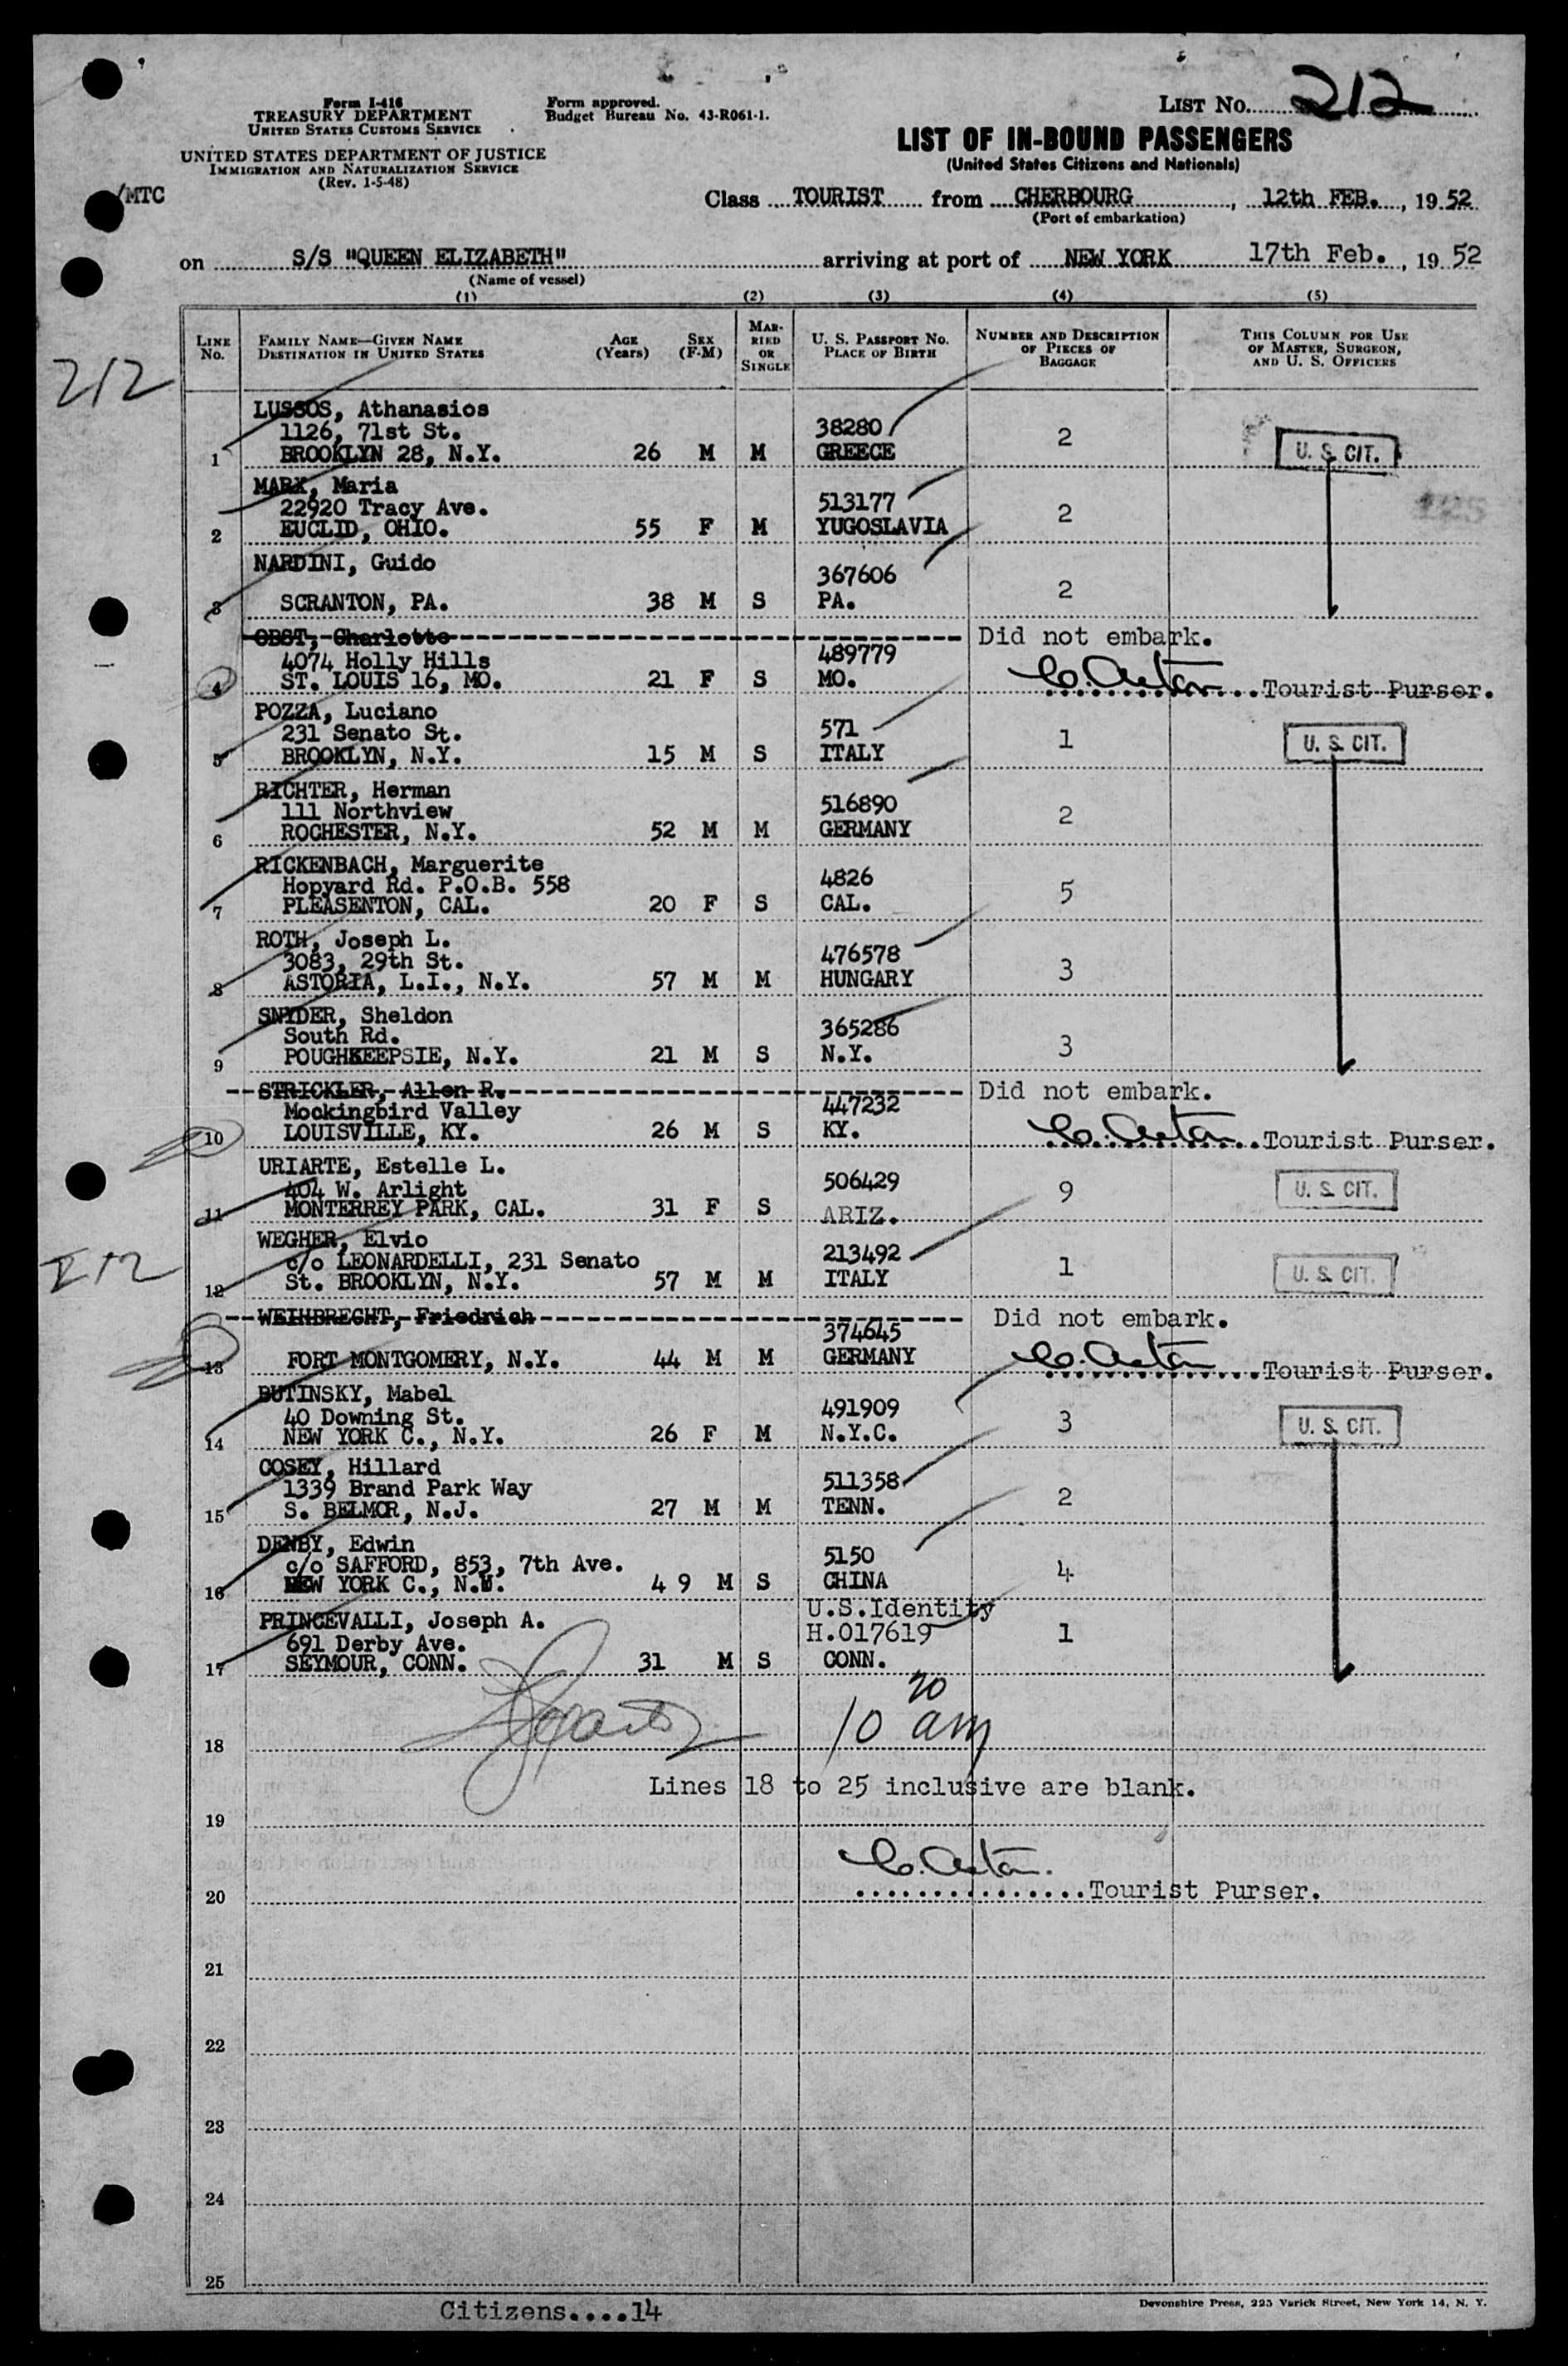 Form I-416
TREASURY DEPARTMENT
UNITED STATES CUSTOMS SERVICE
UNITED STATES DEPARTMENT OF JUSTICE
IMMIGRATION AND NATURALIZATION SERVICE
(Rev. 1-5-48)
/MTC
Form approved.
Budget Bureau No. 43-R061-1.
LIST No. 212
LIST OF IN-BOUND PASSENGERS
(United States Citizens and Nationals)
Class TOURIST from CHERBOURG, 12th FEB., 1952
(Port of embarkation)
on S/S "QUEEN ELIZABETH" arriving at port of NEW YORK 17th Feb., 1952
(Name of vessel)
(1) (2) (3) (4) (5)
LINE No. FAMILY NAME—GIVEN NAME DESTINATION IN UNITED STATES AGE (Years) SEX (F-M) MARRIED OR SINGLE U. S. PASSPORT No. PLACE OF BIRTH NUMBER AND DESCRIPTION OF PIECES OF BAGGAGE THIS COLUMN FOR USE OF MASTER, SURGEON, AND U. S. OFFICERS
212
LUSSOS, Athanasios
1126, 71st St. 38280 2
1 BROOKLYN 28, N.Y. 26 M M GREECE U. S. CIT.
MARX, Maria
22920 Tracy Ave. 513177 2
2 EUCLID, OHIO. 55 F M YUGOSLAVIA
NARDINI, Guido
367606 2
3 SCRANTON, PA. 38 M S PA.
OBST, Charlotte Did not embark.
4074 Holly Hills 489779
4 ST. LOUIS 16, MO. 21 F S MO. Tourist Purser.
POZZA, Luciano
231 Senato St. 571 1 U. S. CIT.
5 BROOKLYN, N.Y. 15 M S ITALY
RICHTER, Herman
111 Northview 516890 2
6 ROCHESTER, N.Y. 52 M M GERMANY
RICKENBACH, Marguerite
Hopyard Rd. P.O.B. 558 4826 5
7 PLEASENTON, CAL. 20 F S CAL.
ROTH, Joseph L.
3083, 29th St. 476578 3
8 ASTORIA, L.I., N.Y. 57 M M HUNGARY
SNYDER, Sheldon
South Rd. 365286 3
9 POUGHKEEPSIE, N.Y. 21 M S N.Y.
STRICKLER, Allen R. Did not embark.
Mockingbird Valley 447232
10 LOUISVILLE, KY. 26 M S KY. Tourist Purser.
URIARTE, Estelle L.
404 W. Arlight 506429 9 U. S. CIT.
11 MONTERREY PARK, CAL. 31 F S ARIZ.
212
WEGHER, Elvio
c/o LEONARDELLI, 231 Senato 213492 1 U. S. CIT.
12 St. BROOKLYN, N.Y. 57 M M ITALY
WEIHBRECHT, Friedrich Did not embark.
374645
13 FORT MONTGOMERY, N.Y. 44 M M GERMANY Tourist Purser.
BUTINSKY, Mabel
40 Downing St. 491909 3 U. S. CIT.
14 NEW YORK C., N.Y. 26 F M N.Y.C.
COSEY, Hillard
1339 Brand Park Way 511358 2
15 S. BELMOR, N.J. 27 M M TENN.
DENBY, Edwin
c/o SAFFORD, 853, 7th Ave. 5150 4
16 NEW YORK C., N.Y. 49 M S CHINA
PRINCEVALLI, Joseph A. U.S.Identity
691 Derby Ave. H.017619 1
17 SEYMOUR, CONN. 31 M S CONN.
18 10 20 am
Lines 18 to 25 inclusive are blank.
19
20 Tourist Purser.
21
22
23
24
25
Citizens....14
Devonshire Press, 225 Varick Street, New York 14, N. Y.